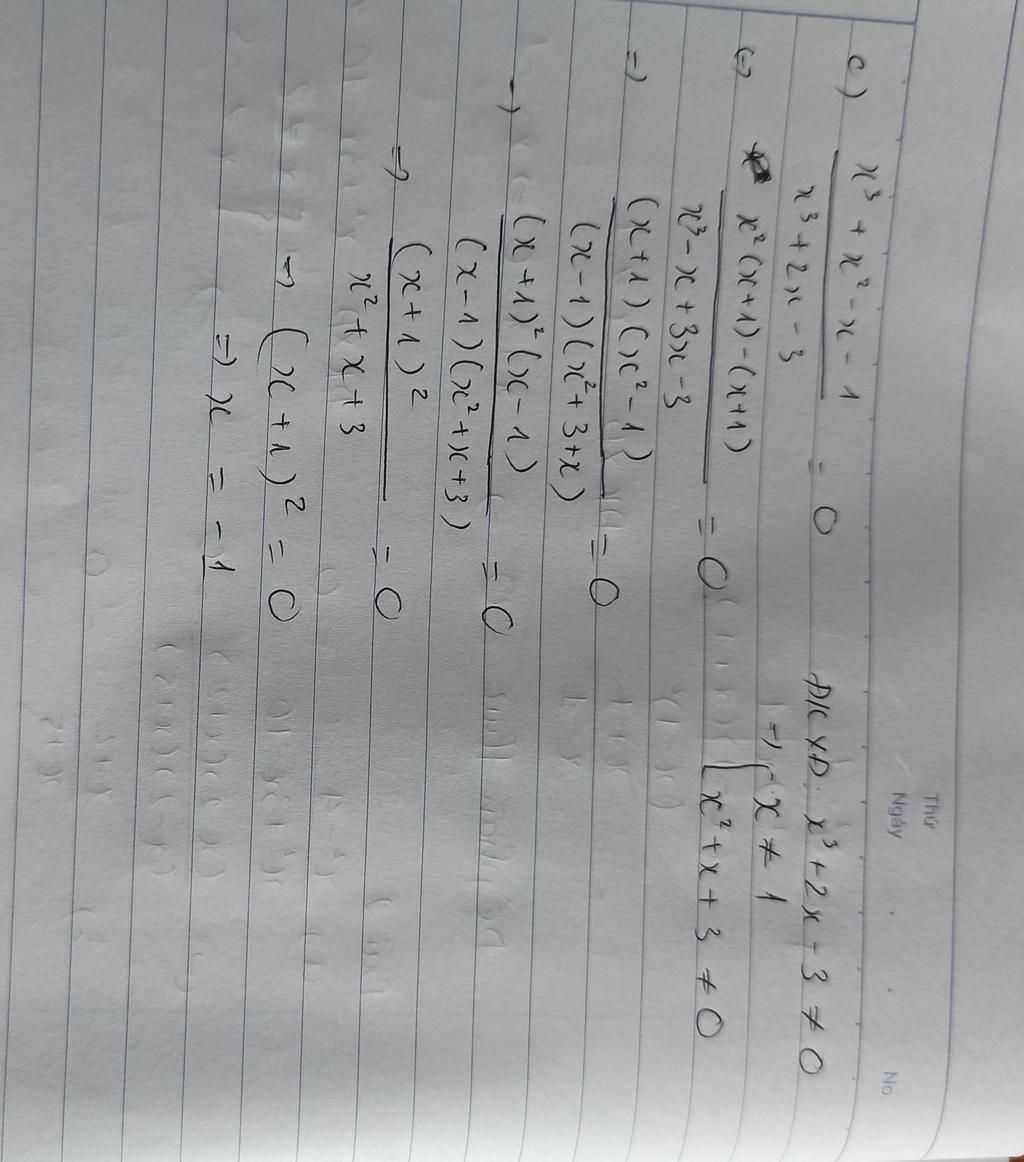 Thứ
Ngày
No.
c) x³ + x² - x - 1 / x³ + 2x - 3 = 0 ĐKXĐ: x³ + 2x - 3 ≠ 0
⇒ { x ≠ 1
x² + x + 3 ≠ 0
(=) x²(x+1) - (x+1) / x³ - x + 3x - 3 = 0
=) (x+1)(x² - 1) / (x - 1)(x² + 3 + x) = 0
=) (x+1)²(x - 1) / (x - 1)(x² + x + 3) = 0
=) (x+1)² / x² + x + 3 = 0
=) (x + 1)² = 0
=) x = - 1